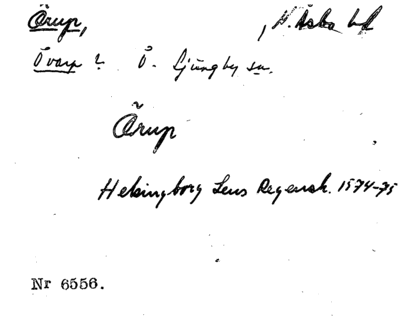 Örup, N. Åsbo hd
Övarp ? Ö. Ljungby sn.
Örup
Helsingborg Lens Regensk. 1574-75
Nr 6556.